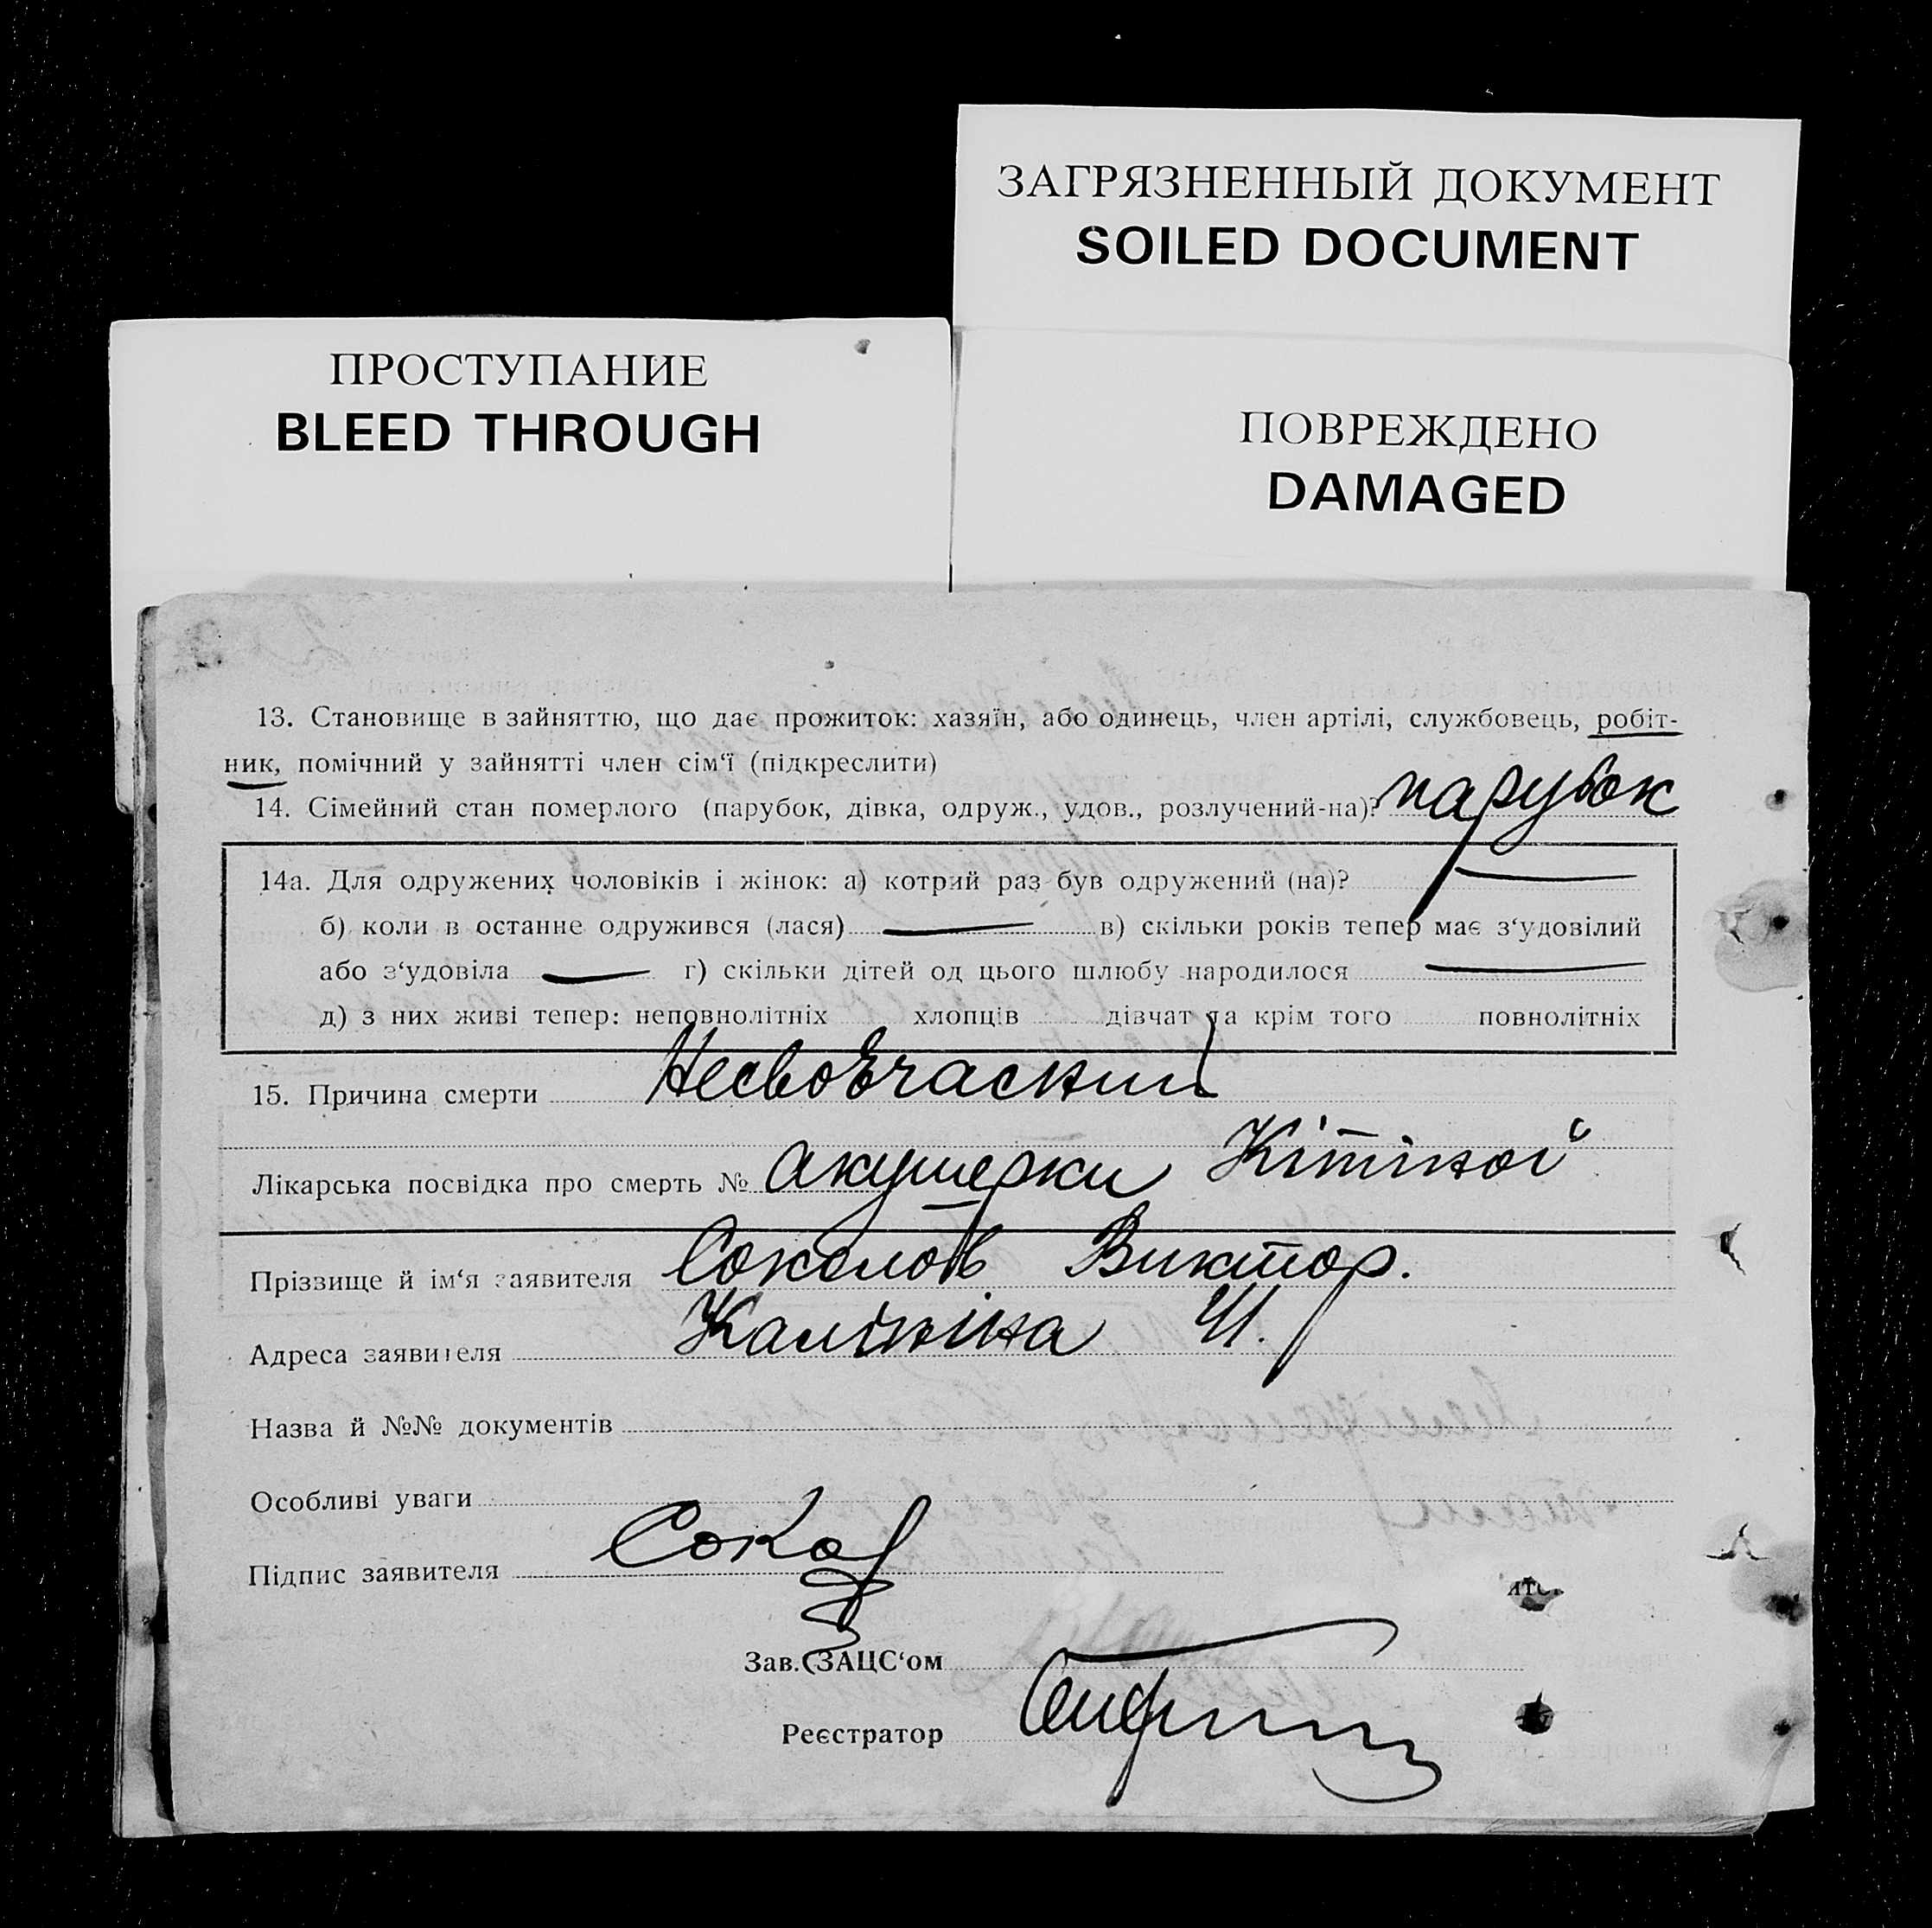 ЗАГРЯЗНЕННЫЙ ДОКУМЕНТ
SOILED DOCUMENT
ПРОСТУПАНИЕ
BLEED THROUGH
ПОВРЕЖДЕНО
DAMAGED
13. Становище в зайняттю, що дає прожиток: хазяїн, або одинець, член артілі, службовець, робіт-
ник, помічний у зайнятті член сім‘ї (підкреслити)
14. Сімейний стан померлого (парубок, дівка, одруж., удов., розлучений-на)? парубок
14а. Для одружених чоловіків і жінок: а) котрий раз був одружений (на)? —
б) коли в останне одружився (лася) — в) скільки років тепер має з‘удовілий
або з‘удовіла — г) скільки дітей од цього шлюбу народилося —
д) з них живі тепер: неповнолітніх хлопців дівчат та крім того повнолітніх
15. Причина смерти
Лікарська посвідка про смерть № акушерки Кітіної
Прізвище й ім‘я заявителя Соколов Виктор.
Адреса заявителя Калініна 41.
Назва й №№ документів
Особливі уваги
Підпис заявителя Сокол
Зав. ЗАЦС‘ом
Реєстратор